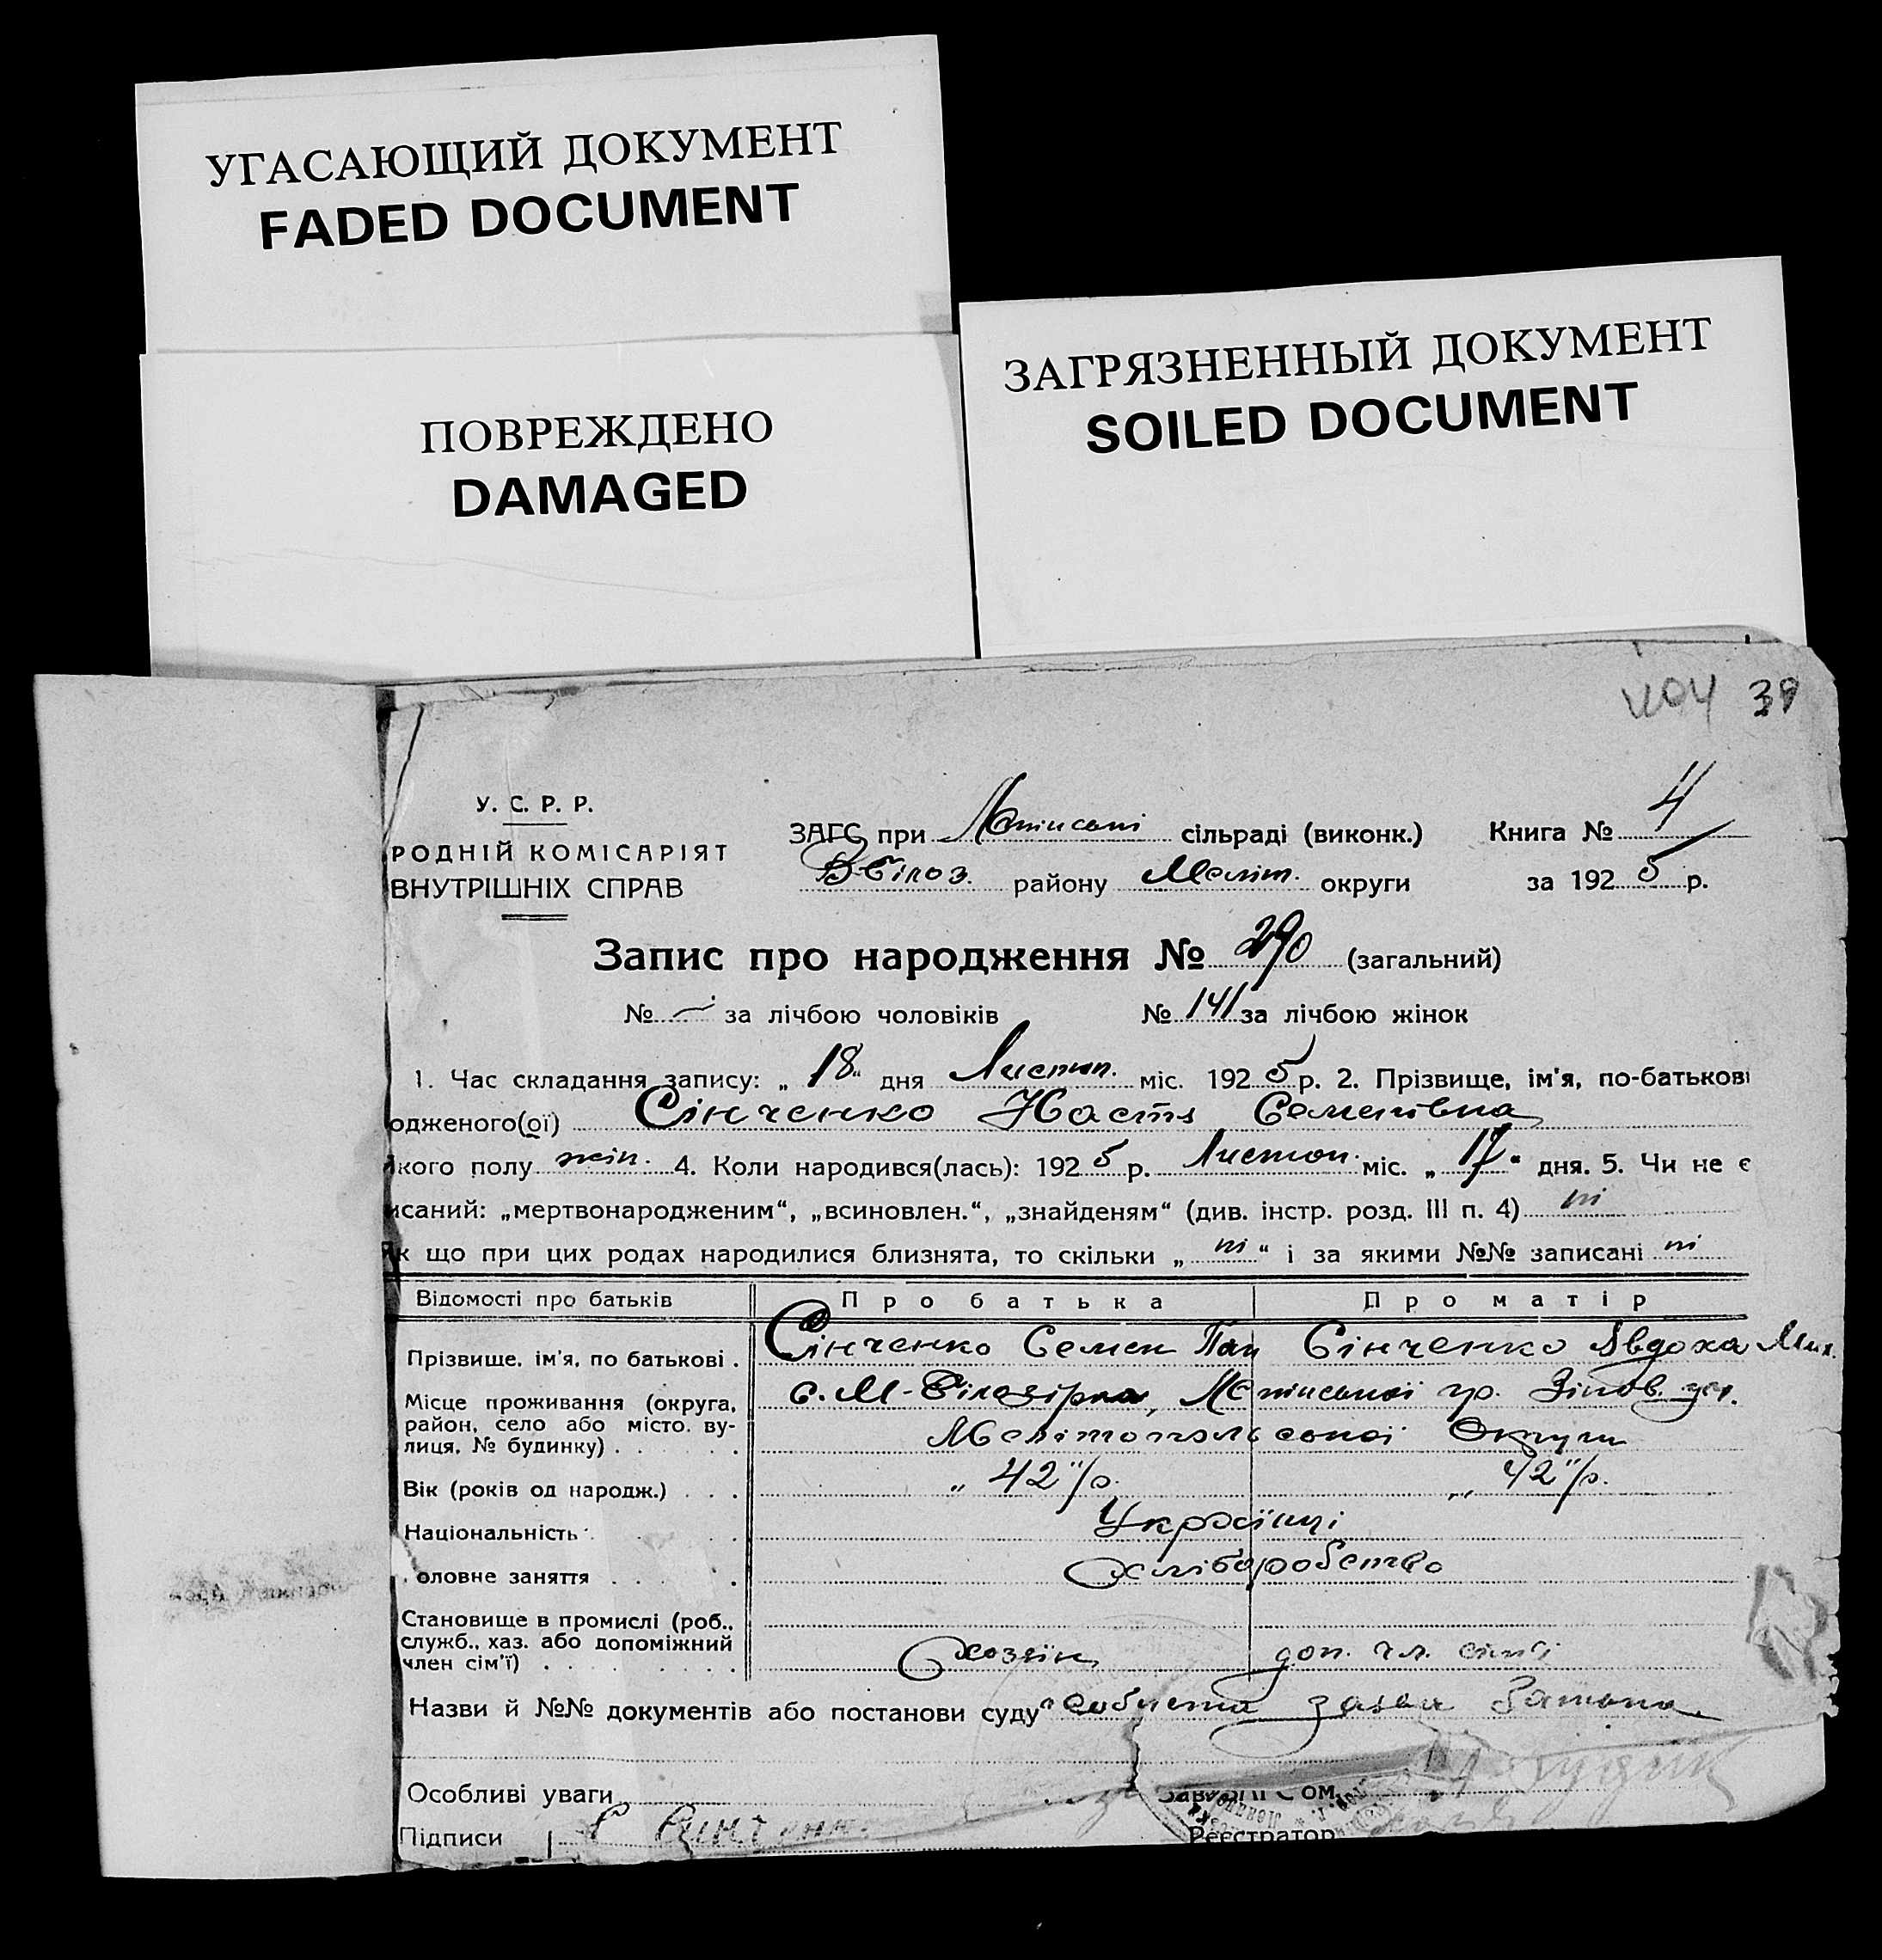 УГАСАЮЩИЙ ДОКУМЕНТ
FADED DOCUMENT
ЗАГРЯЗНЕННЫЙ ДОКУМЕНТ
SOILED DOCUMENT
ПОВРЕЖДЕНО
DAMAGED
39
У. С. Р. Р.
РОДНІЙ КОМІСАРІЯТ
ВНУТРІШНІХ СПРАВ
ЗАГС при сільраді (виконк.) Книга № 4
В-Білоз. району Меліт. округи за 1925 р.
Запис про народження № 290 (загальний)
№ — за лічбою чоловіків № 141 за лічбою жінок
1. Час складання запису: „ 18 " дня Листоп. міс. 1925 р. 2. Прізвище, ім'я, по-батькові
одженого(ої) Сінченко Настя Семенівна
кого полу жін. 4. Коли народився(лась): 1925 р. Листоп. міс. „ 17 " дня. 5. Чи не є
исаний: „мертвонародженим", „всиновлен.", „знайденям" (див. інстр. розд. III п. 4) ні
Як що при цих родах народилися близнята, то скільки „ ні " і за якими №№ записані ні
Відомості про батьків Про батька Про матір
Прізвище, ім'я, по батькові . Сінченко Семен Пан Сінченко Явдоха Мих.
Місце проживання (округа, район, село або місто, вулиця, № будинку) . с. М-Білозірка, гр.
Мелітопольської Округи
Вік (років од народж.) . . . „ 42 "/р. „ 42 "/р.
Національність Українці
оловне заняття . . . Хліборобство
Становище в промислі (роб., служб., хаз. або допоміжний член сім'ї) . Хозяїн доп. чл. сімї
Назви й №№ документів або постанови суду особиста заява
Особливі уваги
Підписи
Реєстратор